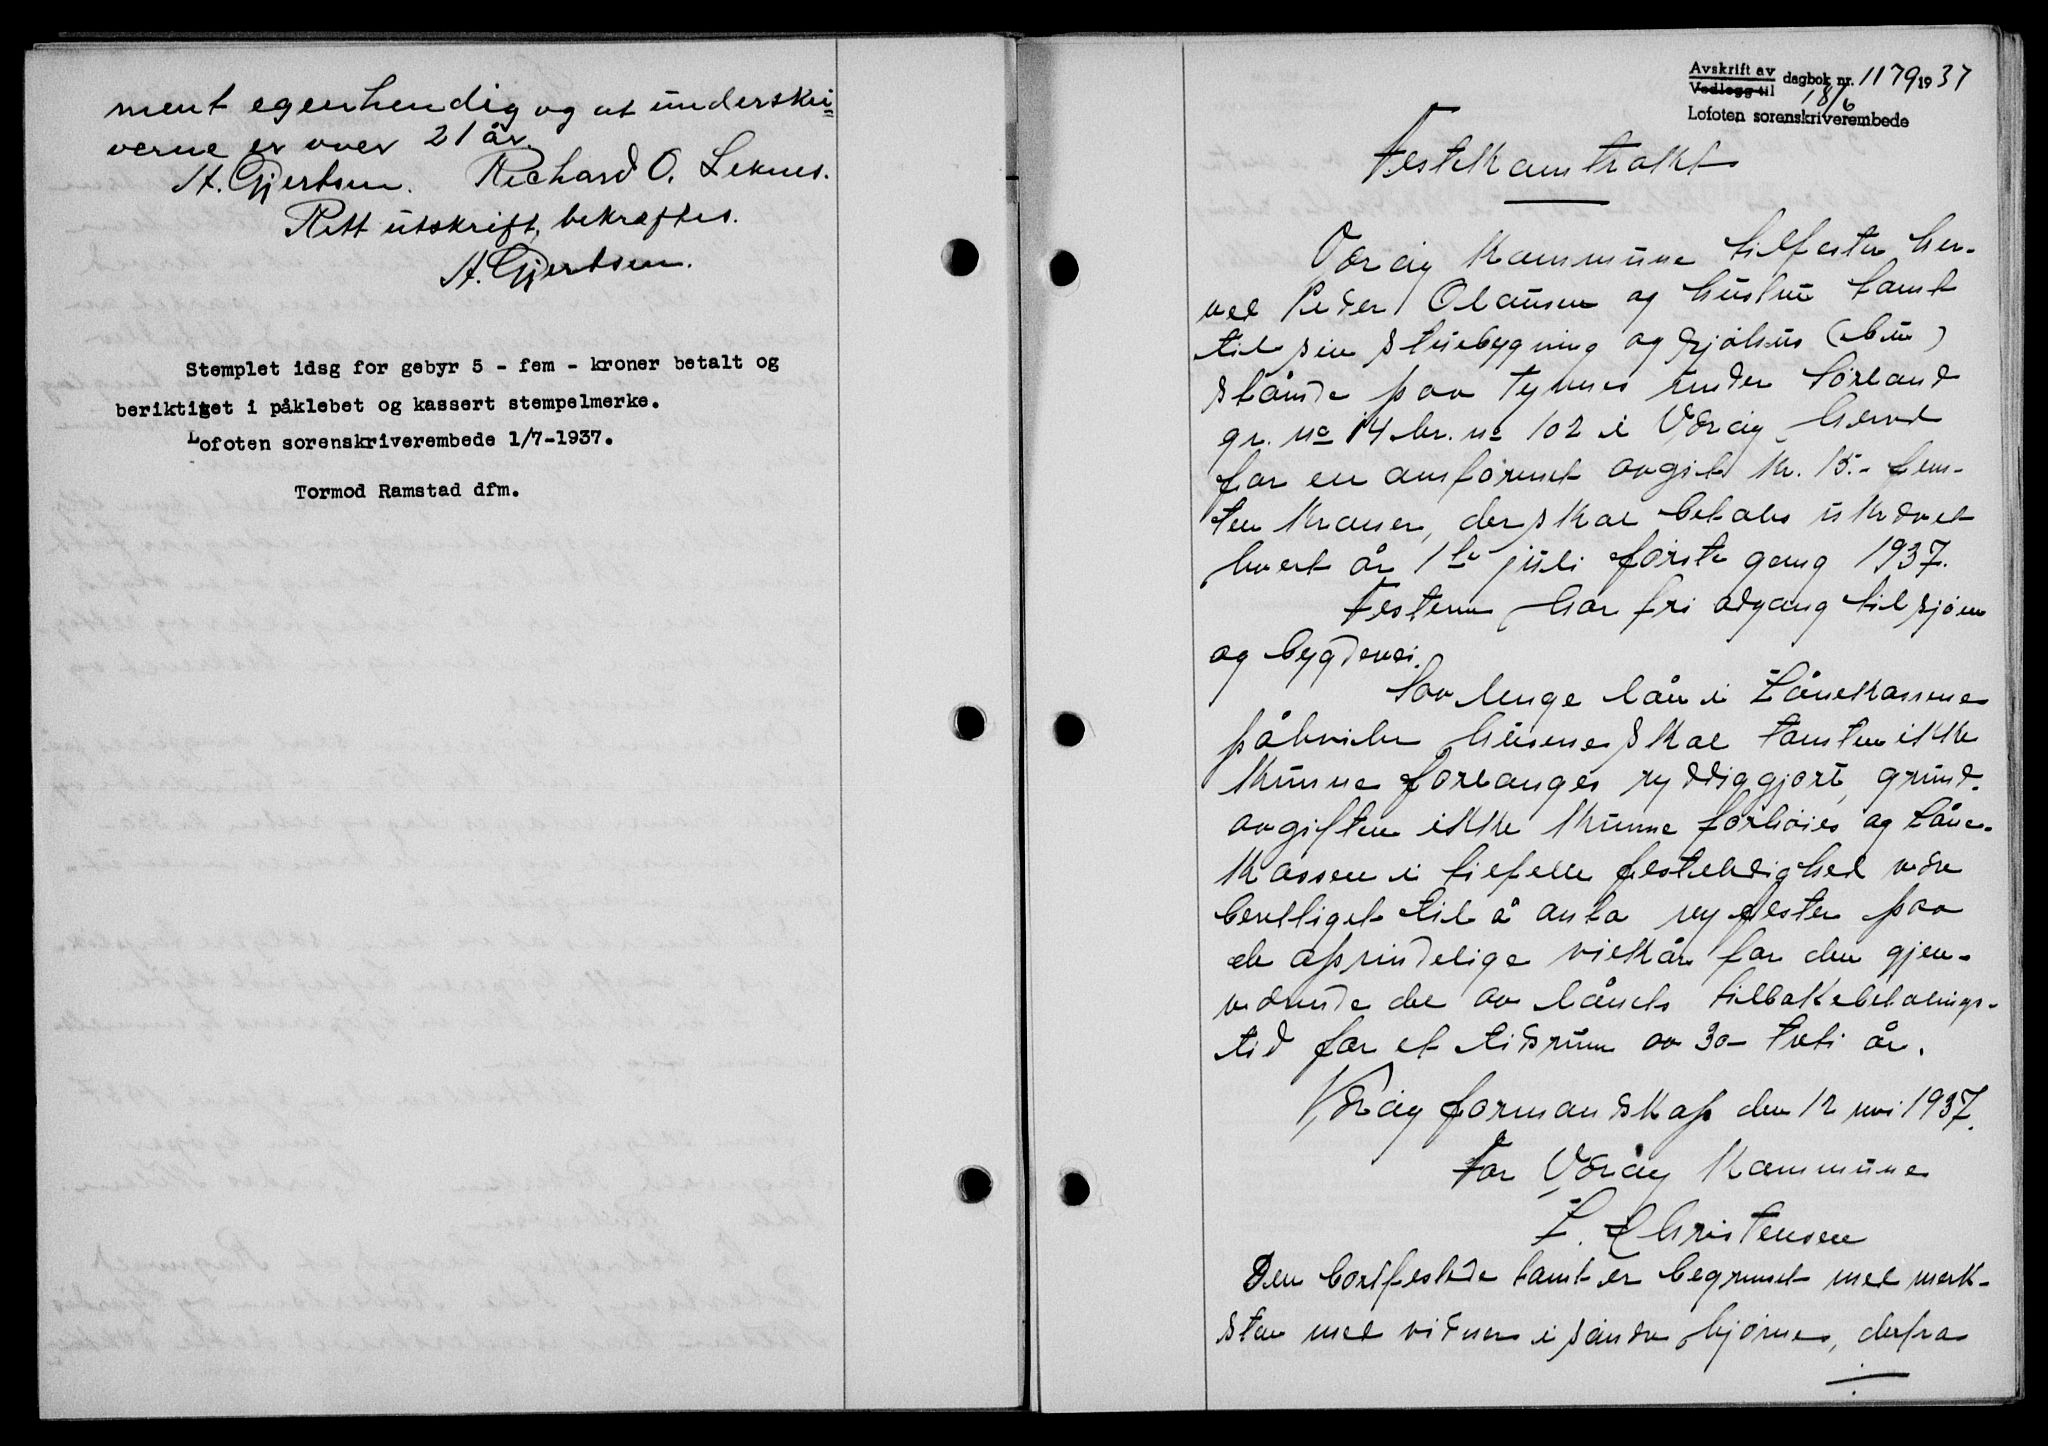 ment egenhendig og at underskri
verne er over 21 år.
A. Gjertsen. Richard O. Leknes.
Rett utskrift, bekreftes.
A. Gjertsen.
Stemplet idag for gebyr 5 - fem - kroner betalt og
beriktiget i påklebet og kassert stempelmerke.
Lofoten sorenskriverembede 1/7-1937.
Tormod Ramstad dfm.
Avskrift av
Vedlegg til dagbok nr. 1179 1937
18/6
Lofoten sorenskriverembede
Festekontrakt
Værøy kommune tilfester her-
ved Peder Olausen og hustru tomt
til sin stuebygning og sjøhus (bu)
stånde paa Tynnes under Sørland
gr. no 14 br. no 102 i Værøy herred
for en omforenet avgift kr. 15.- fem-
ten kroner, der skal betales ukrævet
hvert år 1ste juli første gang 1937.
Festeren har fri adgang til sjøen
og bygdevei.
Saa lenge lån i Lånekassene
påhviler husene skal tomten ikke
kunne forlanges ryddiggjort, grund-
avgiften ikke kunne forhøies og Låne-
kassen i tilfelle festeledighed være
berettiget til å anta ny fester paa
de oprindelige vilkår for den gjen-
værende del av lånets tilbakebetalings-
tid for et tidsrum av 30 - treti år.
Værøy formanskap den 12 mai 1937.
For Værøy kommune
L. Christensen
Den bortfestede tomt er begrenset med merk-
sten med vidner i søndre hjørne, derfra